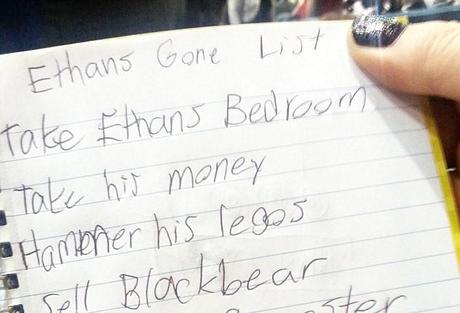 Ethans Gone List
Take Ethans Bedroom
Take his money
Hammer his legos
Sell Blackbear